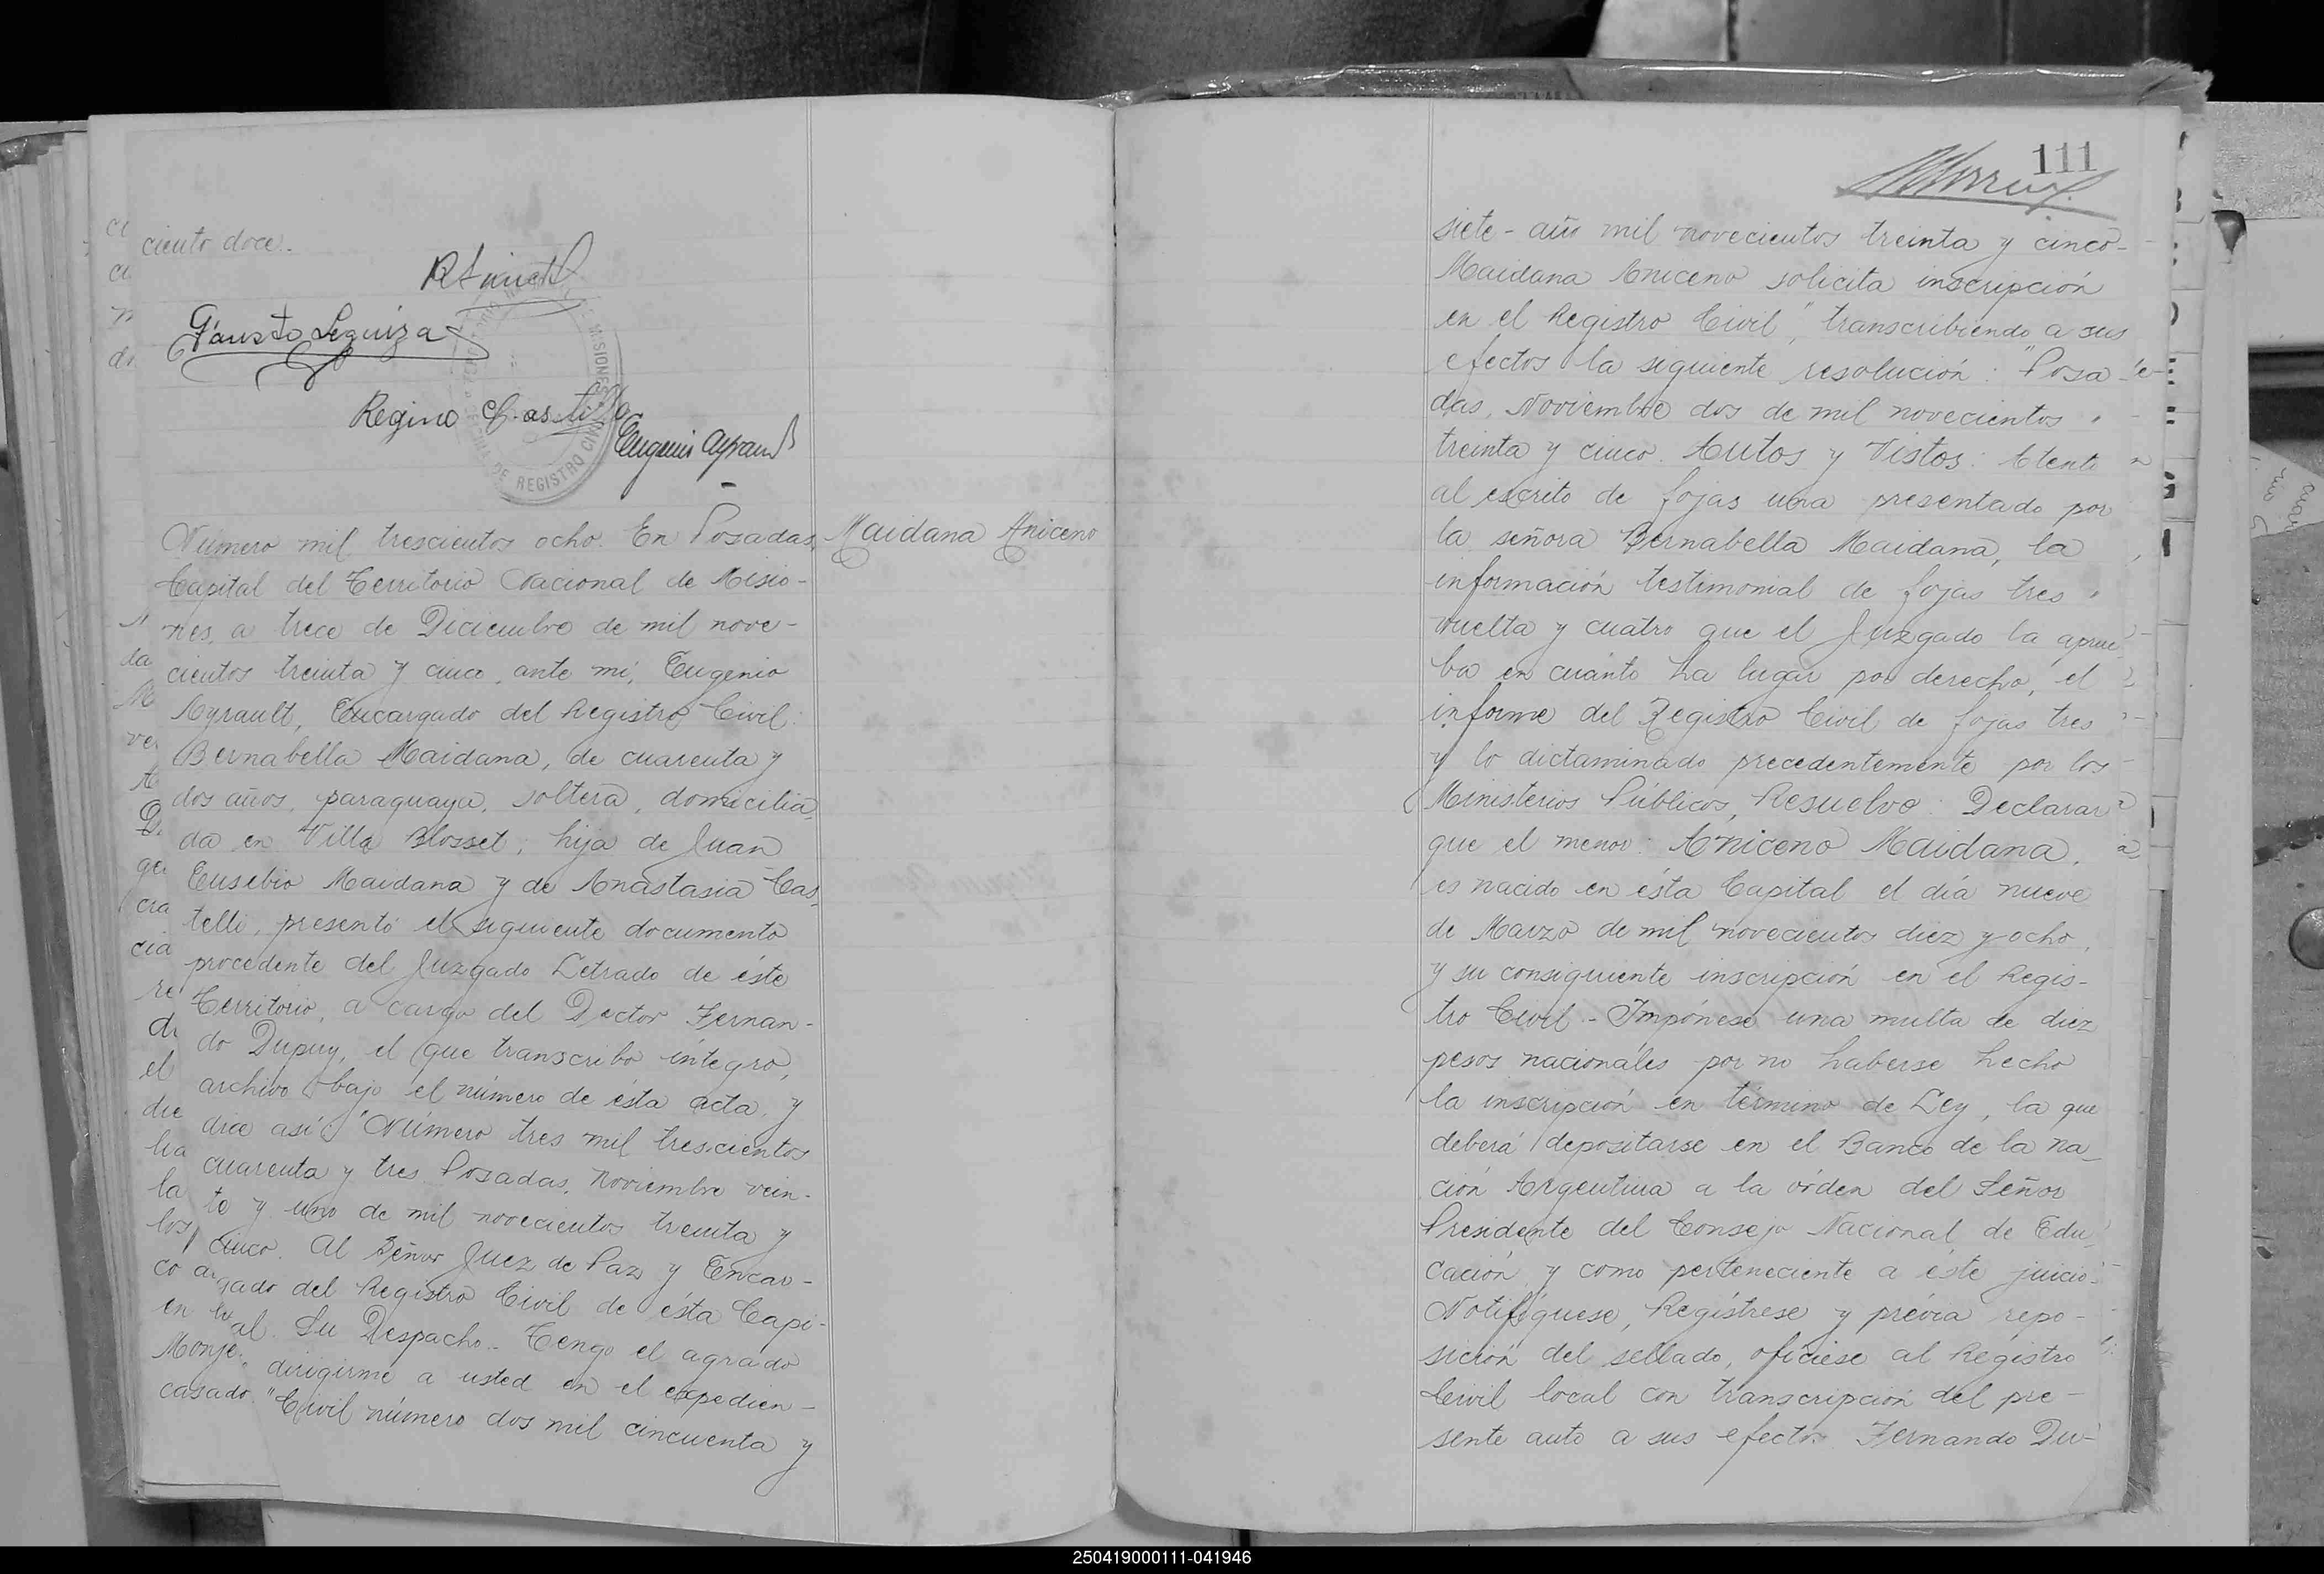 ciento doce.
Fausto Leguiza
Regino Castillo
Eugenio Ayrault
MISIONES
DE REGISTRO CIVIL
Maidana Aniceno
Número mil trescientos ocho. En Posadas,
Capital del Territorio Nacional de Misio-
nes, a trece de Diciembre de mil nove-
cientos treinta y cinco, ante mí, Eugenio
Ayrault, Encargado del Registro Civil:
Bernabella Maidana, de cuarenta y
dos años, paraguaya, soltera, domicilia-
da en Villa Blosset; hija de Juan
Eusebio Maidana y de Anastasia Cas-
telli, presentó el siguiente documento
procedente del Juzgado Letrado de éste
Territorio, a cargo del Doctor Fernan-
do Dupuy, el que transcribo íntegro,
archivo bajo el número de ésta acta, y
dice así: "Número tres mil trescientos
cuarenta y tres. Posadas, Noviembre vein-
te y uno de mil novecientos treinta y
cinco. Al Señor Juez de Paz y Encar-
gado del Registro Civil de ésta Capi-
al. Su Despacho.- Tengo el agrado
dirigirme a usted en el expedien-
"Civil número dos mil cincuenta y
da
ver
ge
cra
cia
re
de
el
die
ha
la
los
co
en
Monje
casado
111
siete - año mil novecientos treinta y cinco-
Maidana Aniceno solicita inscripción
en el Registro Civil", transcribiendo a sus
efectos la siguiente resolución: "Posa-
das, Noviembre dos de mil novecientos
treinta y cinco. Autos y Vistos: Atento
al escrito de fojas una presentado por
la señora Bernabella Maidana, la
información testimonial de fojas tres
vuelta y cuatro que el Juzgado la aprue-
ba en cuánto ha lugar por derecho, el
informe del Registro Civil de fojas tres
y lo dictaminado precedentemente por los
Ministerios Públicos, Resuelvo: Declarar
que el menor: Aniceno Maidana,
es nacido en ésta Capital el día nueve
de Marzo de mil novecientos diez y ocho,
y su consiguiente inscripción en el Regis-
tro Civil.- Impónese una multa de diez
pesos nacionales por no haberse hecho
la inscripción en término de Ley, la que
deberá depositarse en el Banco de la Na-
ción Argentina a la órden del Señor
Presidente del Consejo Nacional de Edu-
cación y como perteneciente a éste juicio.
Notifíquese, Regístrese y prévia repo-
sición del sellado, ofíciese al Registro
Civil local con transcripción del pre-
sente auto a sus efectos. Fernando Du-
250419000111-041946